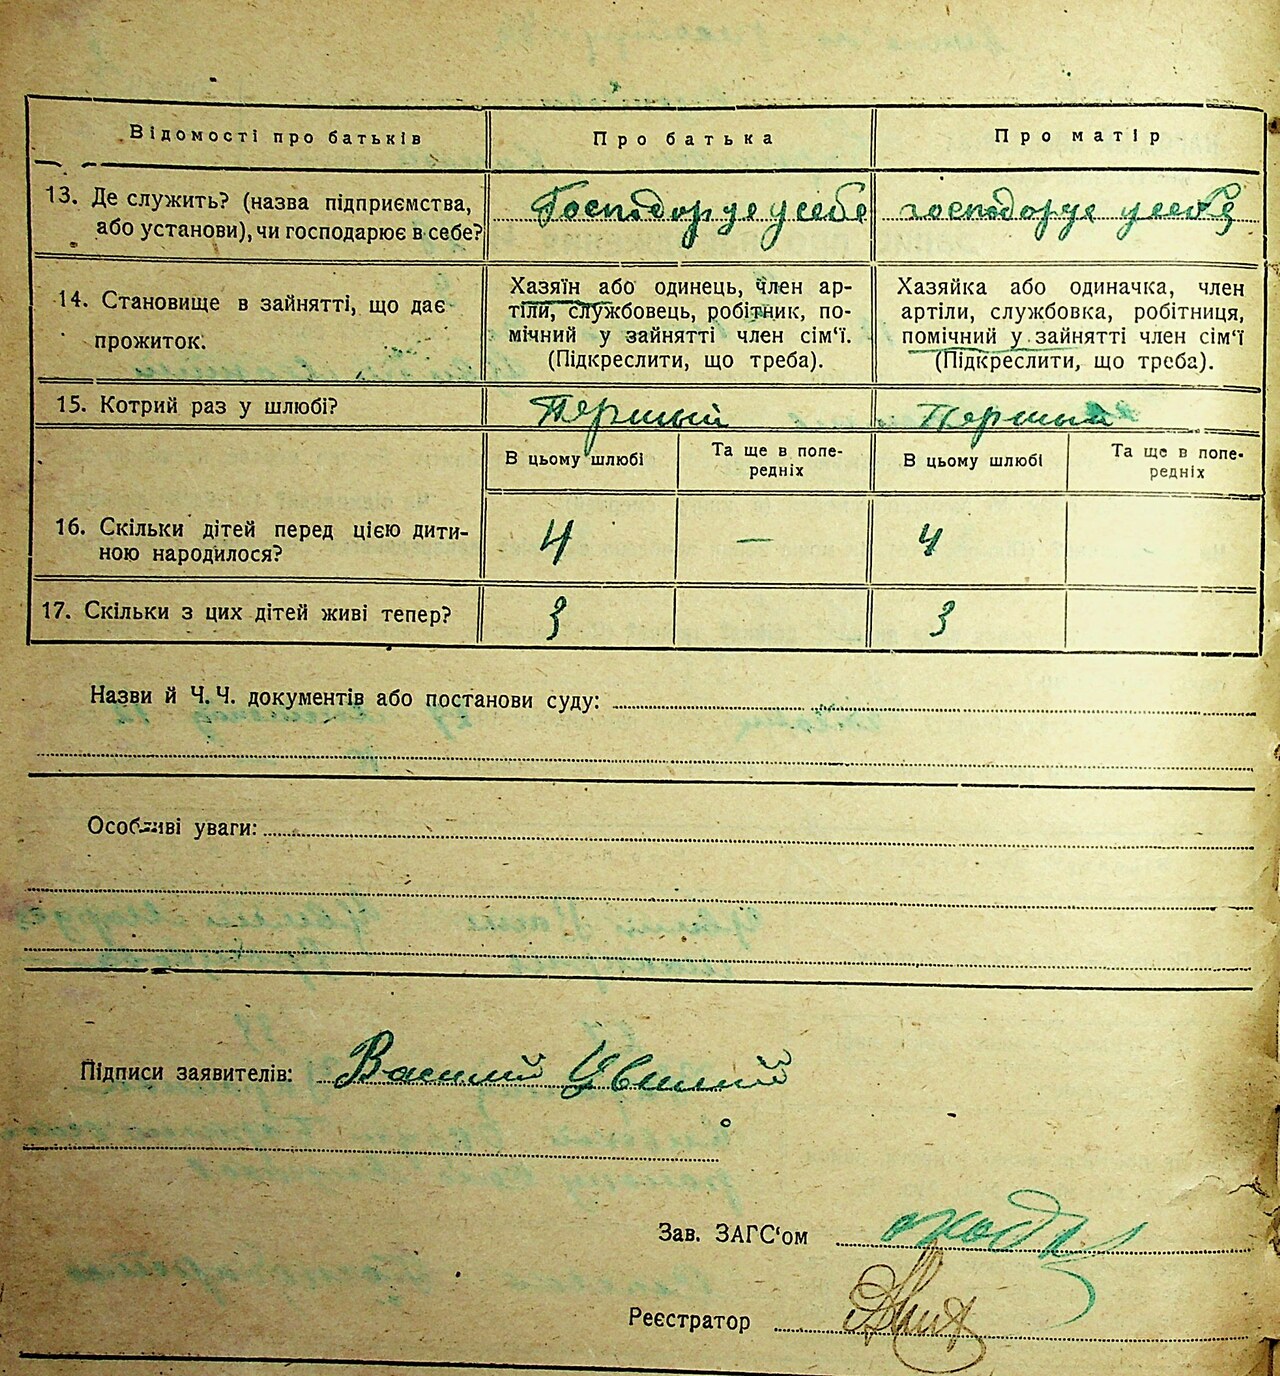 Відомості про батьків Про батька Про матір
13. Де служить? (назва підприємства, або установи), чи господарює в себе?
Господорує у себе господорує у себе
14. Становище в зайнятті, що дає прожиток.
Хазяїн або одинець, член ар-
тіли, службовець, робітник, по-
мічний у зайнятті член сім‘ї.
(Підкреслити, що треба).
Хазяйка або одиначка, член
артіли, службовка, робітниця,
помічний у зайнятті член сім‘ї
(Підкреслити, що треба).
15. Котрий раз у шлюбі? Першый Першый
В цьому шлюбі Та ще в попе-
редніх В цьому шлюбі Та ще в попе-
редніх
16. Скільки дітей перед цією дити-
ною народилося? 4 — 4
17. Скільки з цих дітей живі тепер? 3 3
Назви й Ч. Ч. документів або постанови суду:
Особливі уваги:
Підписи заявителів: Василий Цвилий
Зав. ЗАГС‘ом
Реєстратор